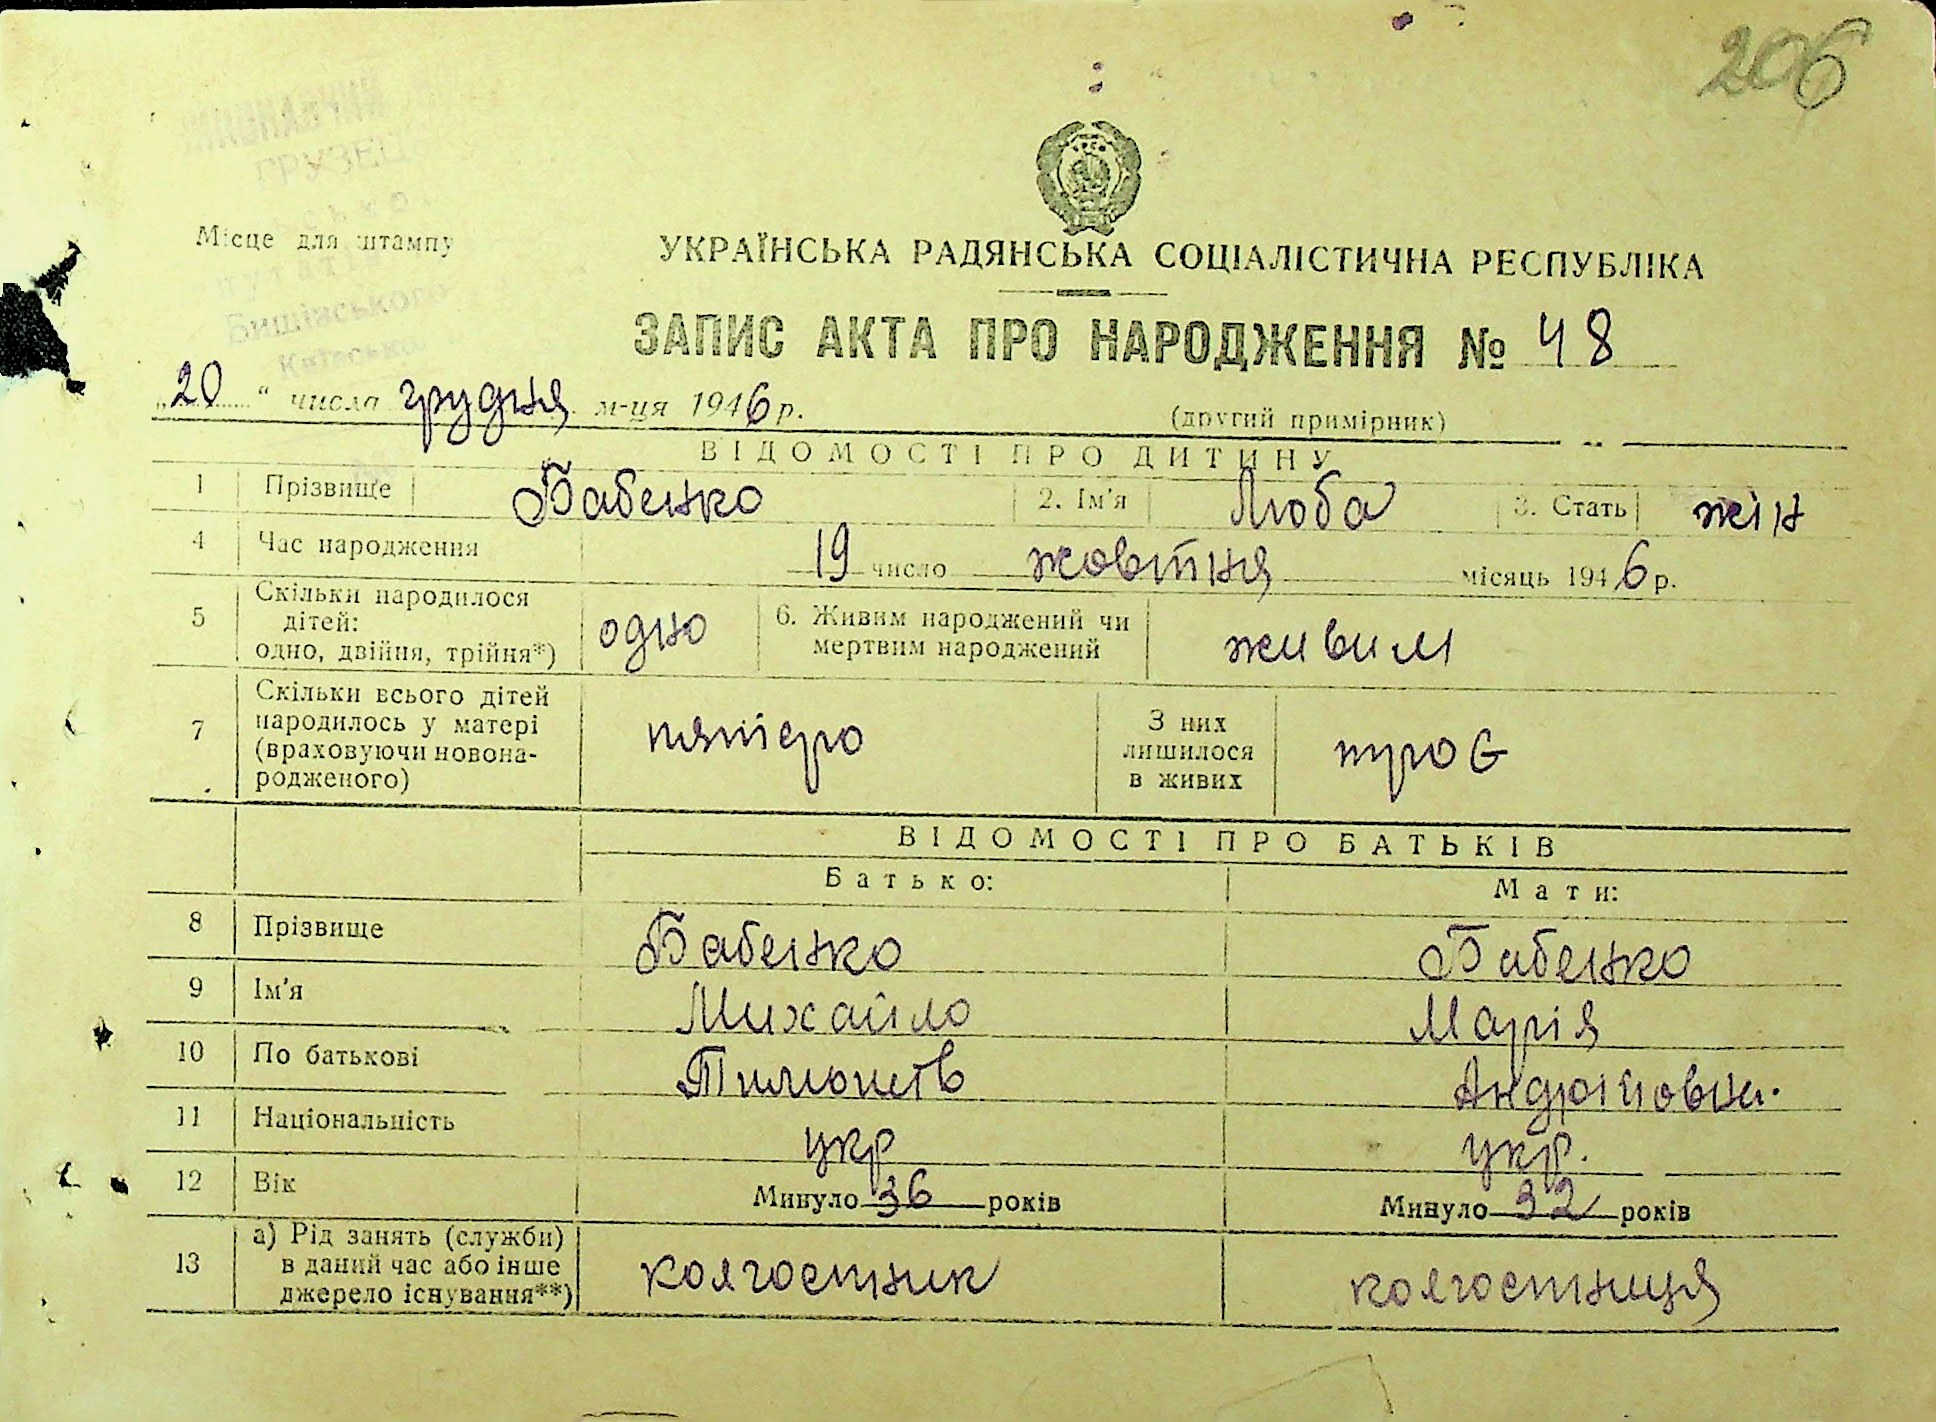 206
Місце для штампу
Бишівського
УКРАЇНСЬКА РАДЯНСЬКА СОЦІАЛІСТИЧНА РЕСПУБЛІКА
ЗАПИС АКТА ПРО НАРОДЖЕННЯ № 48
„20“ числа грудня м-ця 1946 р.
(другий примірник)
ВІДОМОСТІ ПРО ДИТИНУ
1 Прізвище Бабенко 2. Ім'я Люба 3. Стать жін
4 Час народження 19 число жовтня місяць 1946 р.
5 Скільки народилося дітей: одно, двійня, трійня*) одно 6. Живим народжений чи мертвим народжений живим
7 Скільки всього дітей народилось у матері (враховуючи новонародженого) пятєро З них лишилося в живих троє
ВІДОМОСТІ ПРО БАТЬКІВ
Батько: Мати:
8 Прізвище Бабенко Бабенко
9 Ім'я Михайло Марія
10 По батькові Андрійовна
11 Національність укр укр.
12 Вік Минуло 36 років Минуло 32 років
13 а) Рід занять (служби) в даний час або інше джерело існування**) колгоспник колгоспниця